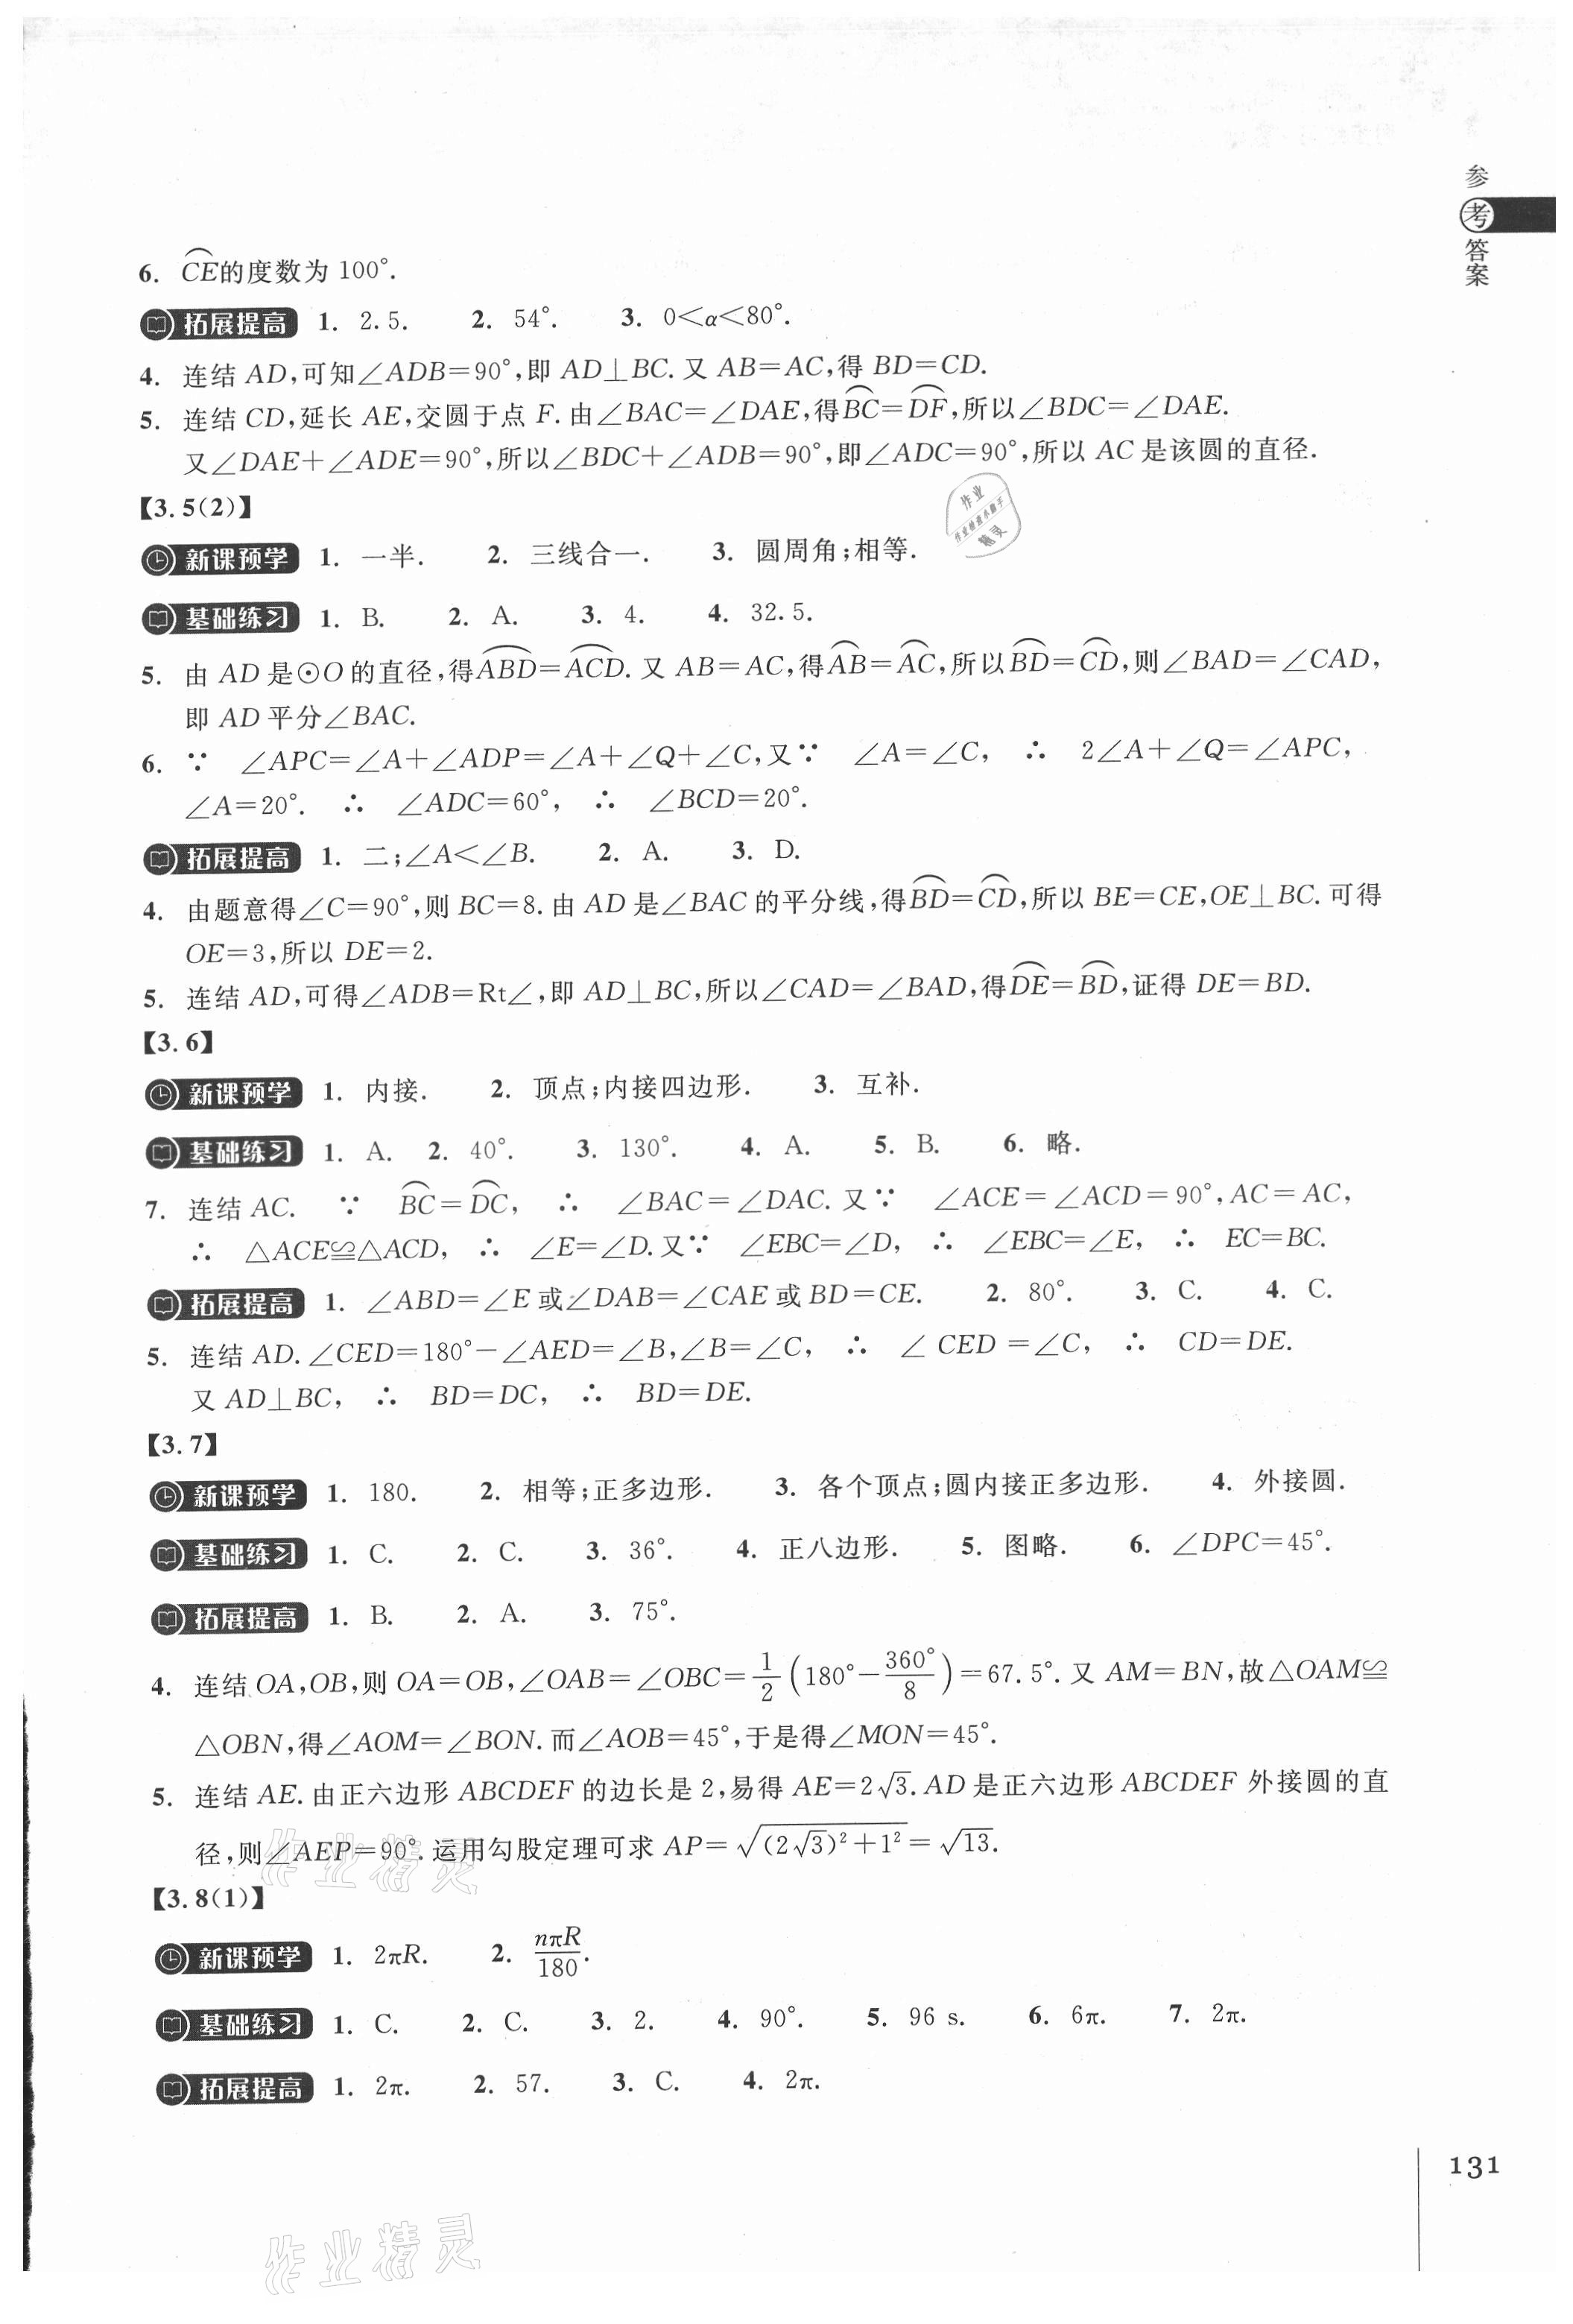 参考答案
6. ⌒CE的度数为 100°.
拓展提高 1. 2.5. 2. 54°. 3. 0＜α＜80°.
4. 连结 AD,可知∠ADB=90°,即 AD⊥BC. 又 AB=AC,得 BD=CD.
5. 连结 CD,延长 AE,交圆于点 F. 由∠BAC=∠DAE,得⌒BC=⌒DF,所以∠BDC=∠DAE.
又∠DAE+∠ADE=90°,所以∠BDC+∠ADB=90°,即∠ADC=90°,所以 AC 是该圆的直径.
【3.5(2)】
新课预学 1. 一半. 2. 三线合一. 3. 圆周角;相等.
基础练习 1. B. 2. A. 3. 4. 4. 32.5.
5. 由 AD 是⊙O 的直径,得⌒ABD=⌒ACD. 又 AB=AC,得⌒AB=⌒AC,所以⌒BD=⌒CD,则∠BAD=∠CAD,
即 AD 平分∠BAC.
6. ∵ ∠APC=∠A+∠ADP=∠A+∠Q+∠C,又∵ ∠A=∠C, ∴ 2∠A+∠Q=∠APC,
∠A=20°. ∴ ∠ADC=60°, ∴ ∠BCD=20°.
拓展提高 1. 二;∠A＜∠B. 2. A. 3. D.
4. 由题意得∠C=90°,则 BC=8. 由 AD 是∠BAC 的平分线,得⌒BD=⌒CD,所以 BE=CE,OE⊥BC. 可得
OE=3,所以 DE=2.
5. 连结 AD,可得∠ADB=Rt∠,即 AD⊥BC,所以∠CAD=∠BAD,得⌒DE=⌒BD,证得 DE=BD.
【3.6】
新课预学 1. 内接. 2. 顶点;内接四边形. 3. 互补.
基础练习 1. A. 2. 40°. 3. 130°. 4. A. 5. B. 6. 略.
7. 连结 AC. ∵ ⌒BC=⌒DC, ∴ ∠BAC=∠DAC. 又∵ ∠ACE=∠ACD=90°,AC=AC,
∴ △ACE≌△ACD, ∴ ∠E=∠D. 又∵ ∠EBC=∠D, ∴ ∠EBC=∠E, ∴ EC=BC.
拓展提高 1. ∠ABD=∠E 或∠DAB=∠CAE 或 BD=CE. 2. 80°. 3. C. 4. C.
5. 连结 AD. ∠CED=180°-∠AED=∠B,∠B=∠C, ∴ ∠CED=∠C, ∴ CD=DE.
又 AD⊥BC, ∴ BD=DC, ∴ BD=DE.
【3.7】
新课预学 1. 180. 2. 相等;正多边形. 3. 各个顶点;圆内接正多边形. 4. 外接圆.
基础练习 1. C. 2. C. 3. 36°. 4. 正八边形. 5. 图略. 6. ∠DPC=45°.
拓展提高 1. B. 2. A. 3. 75°.
4. 连结 OA,OB,则 OA=OB,∠OAB=∠OBC=1/2(180°-360°/8)=67.5°. 又 AM=BN,故△OAM≌
△OBN,得∠AOM=∠BON. 而∠AOB=45°,于是得∠MON=45°.
5. 连结 AE. 由正六边形 ABCDEF 的边长是 2,易得 AE=2√3. AD 是正六边形 ABCDEF 外接圆的直
径,则∠AEP=90°. 运用勾股定理可求 AP=√((2√3)²+1²)=√13.
【3.8(1)】
新课预学 1. 2πR. 2. nπR/180.
基础练习 1. C. 2. C. 3. 2. 4. 90°. 5. 96 s. 6. 6π. 7. 2π.
拓展提高 1. 2π. 2. 57. 3. C. 4. 2π.
131
作业精灵
作业精灵